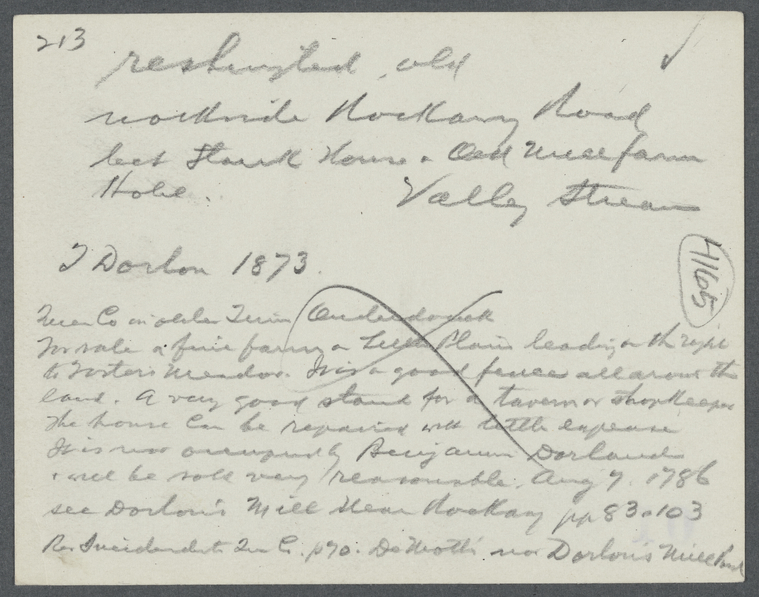 213
reshingled, old
northside Rockaway Road
bet Stank House & Old Mill farm
Hotel.
Valley Stream
T Dorlon 1873.
4165
Queens Co in olden Times Onderdonk
For sale a fine farm Little Plains leading on the right
to Fosters Meadow. It is a good fence all around the
land. A very good stand for a tavern or shopkeeper
The house can be repaired with little expense
It is now occupied by Benjamin Dorland
& will be sold very reasonable. Aug 7, 1786
see Dorlon's Mill Near Rockaway pp 83 & 103
Rev Incidents Queens Co. p 70. DeMott's now Dorlon's Mill Pond